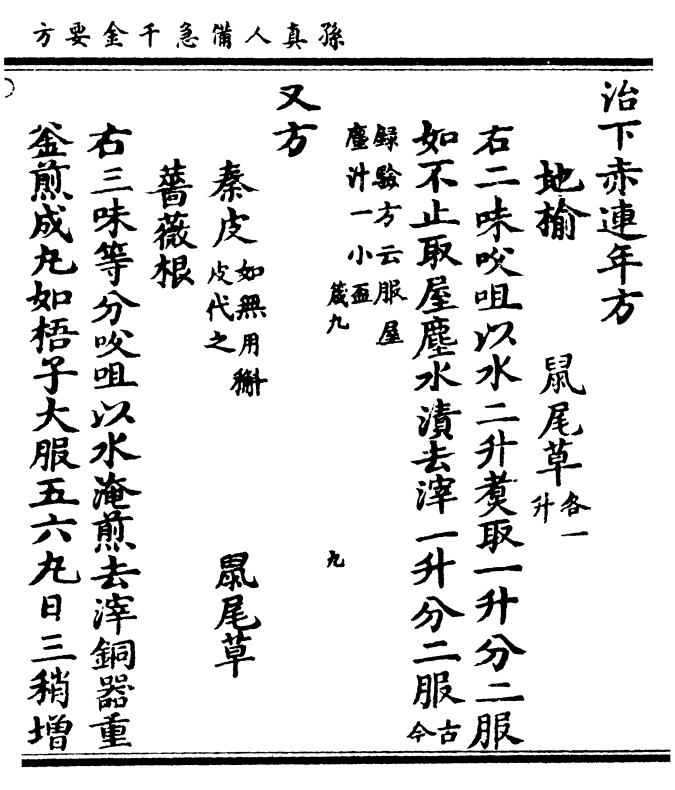 孫真人備急千金要方
治下赤連年方
地榆 鼠尾草 各一升
右二味㕮咀以水二升煑取一升分二服
如不止取屋塵水漬去滓一升分二服 古今
録驗方云服屋
塵汁一小盃
箴九 九
又方
秦皮 如無用槲皮代之 鼠尾草
薔薇根
右三味等分㕮咀以水淹煎去滓銅器重
釜煎成丸如梧子大服五六丸日三稍增